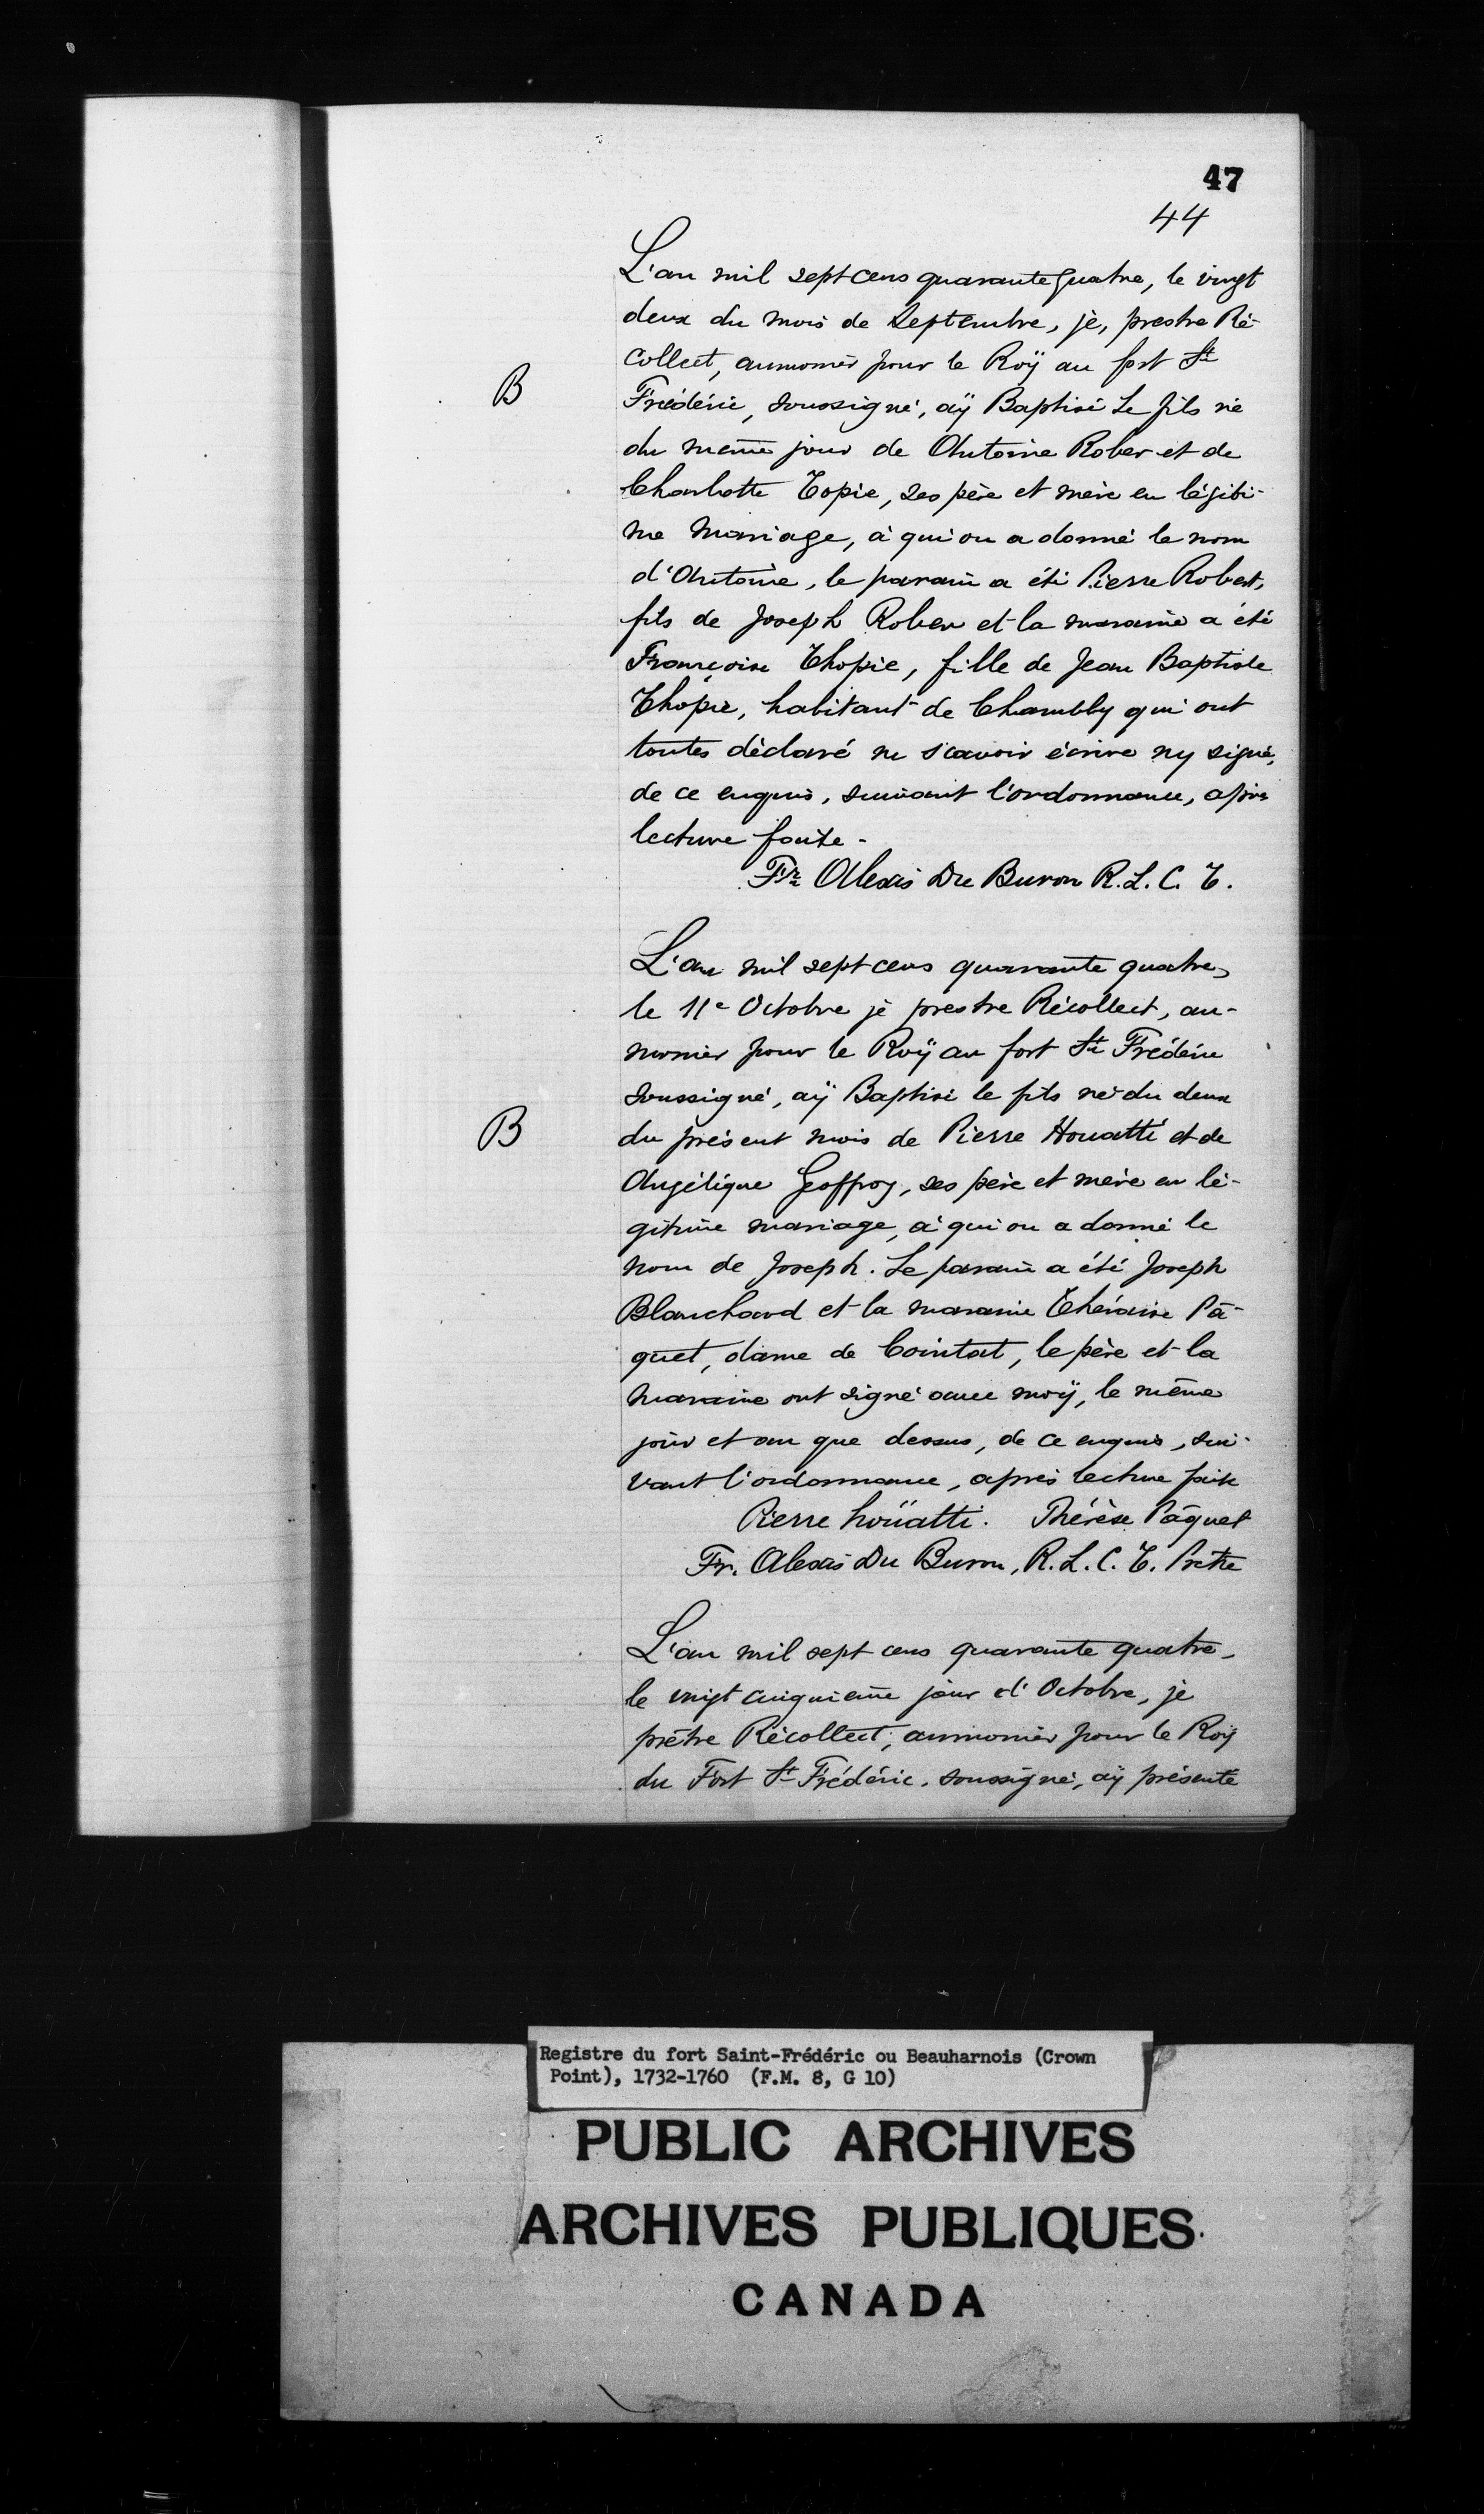 47
44
L'an mil sept cens quarante quatre, le vingt
deux du mois de Septembre, je, prestre Ré-
collect, aumonier pour le Roÿ au fort St
B
Frédéric, soussigné, aÿ Baptisé Le fils né
du même jour de Antoine Rober et de
Charlotte Topie, ses père et mère en légiti-
me mariage, à qui on a donné le nom
d'Antoine, le parain a été Pierre Robert,
fils de Joseph Rober et la maraine a été
Françoise Thopie, fille de Jean Baptiste
Thopie, habitant de Chambly qui ont
toutes déclaré ne scavoir écrire ny signé,
de ce enquis, suivant l'ordonnance, après
lecture faite.
Fr. Alexis Du Buron R. L. C. T.
L'an mil sept cens quarante quatre,
le 11e Octobre je prestre Récollect, au-
monier pour le Roÿ au fort St Frédéric
soussigné, aÿ Baptisé le fils né du deux
B
du présent mois de Pierre Houatté et de
Angélique Geoffroy, ses père et mère en lé-
gitime mariage, à qui on a donné le
nom de Joseph. Le parain a été Joseph
Blanchard et la maraine Théraise Pâ-
quet, dame de Cointat, le père et la
maraine ont signé avec moÿ, le même
jour et an que dessus, de ce enquis, sui-
vant l'ordonnance, après lecture faite
Pierre hoüatti. Thérèse Pâquet
Fr. Alexis Du Buron, R. L. C. T. Prêtre
L'an mil sept cens quarante quatre,
le vingt cinquième jour d'Octobre, je
prêtre Récollect, aumonier pour le Roy
du Fort St Frédéric, soussigné, aÿ présente
Registre du fort Saint-Frédéric ou Beauharnois (Crown
Point), 1732-1760 (F.M. 8, G 10)
PUBLIC ARCHIVES
ARCHIVES PUBLIQUES
CANADA